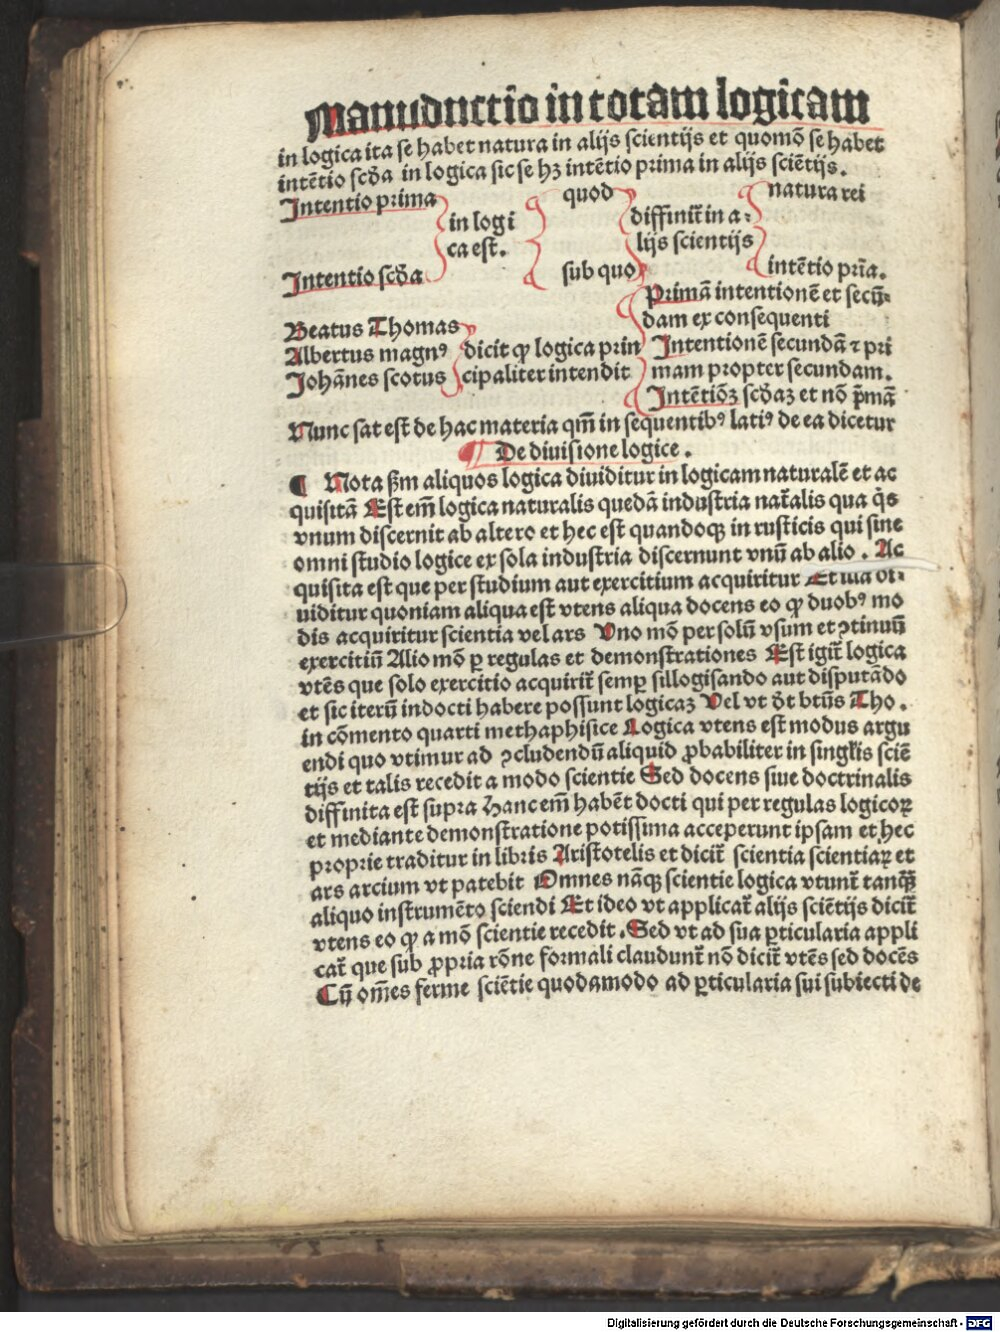 Manuductio in totam logicam
in logica ita se habet natura in alijs scientijs et quomō se habet
intētio scđa in logica sic se hꝫ intētio prima in alijs sciētijs.
Intentio prima
in logi
ca est.
Intentio scđa
quod
sub quo
diffinit̄ in a-
lijs scientijs
natura rei
intētio pria.
Beatus Thomas
Albertus magnꝰ
Johānes scotus
dicit ꝙ logica prin
cipaliter intendit
Primā intentionē et secū-
dam ex consequenti
Intentionē secundā ⁊ pri
mam propter secundam.
Intētiōꝫ scđaꝫ et nō p̄mā
Nunc sat est de hac materia qm̄ in sequentibꝰ latiꝰ de ea dicetur
¶ De diuisione logice.
¶ Nota ẜm aliquos logica diuiditur in logicam naturalē et ac
quisitā Est em̄ logica naturalis quedā industria nat̄alis qua q̇s
vnum discernit ab altero et hec est quandoqꝫ in rusticis qui sine
omni studio logice ex sola industria discernunt vnū ab alio. Ac
quisita est que per studium aut exercitium acquiritur Et illa di-
uiditur quoniam aliqua est vtens aliqua docens eo ꝙ duobꝰ mo
dis acquiritur scientia vel ars Uno mō per solū vsum et ꝯtinuū
exercitiū Alio mō ꝑ regulas et demonstrationes Est igit̄ logica
vtēs que solo exercitio acquirit̄ semꝑ sillogisando aut disputādo
et sic iterū indocti habere possunt logicaꝫ Uel vt đt btūs Tho.
in cōmento quarti methaphisice Logica vtens est modus argu
endi quo vtimur ad ꝯcludendū aliquid ꝓbabiliter in singl̓is sciē
tijs et talis recedit a modo scientie Sed docens siue doctrinalis
diffinita est supra Hanc em̄ habēt docti qui per regulas logicoꝝ
et mediante demonstratione potissima acceperunt ipsam et hec
proprie traditur in libris Aristotelis et dicit̄ scientia scientiaꝝ et
ars arcium vt patebit Omnes nāqꝫ scientie logica vtunt̄ tanq̄ꝫ
aliquo instrumēto sciendi Et ideo vt applicat̄ alijs sciētijs dicit̄
vtens eo ꝙ a mō scientie recedit. Sed vt ad sua ꝑticularia appli
cat̄ que sub ꝓpria rōne formali claudunt̄ nō dicit̄ vtēs sed docēs
Cū om̄es ferme sciētie quodamodo ad ꝑticularia sui subiecti de
Digitalisierung gefördert durch die Deutsche Forschungsgemeinschaft - DFG